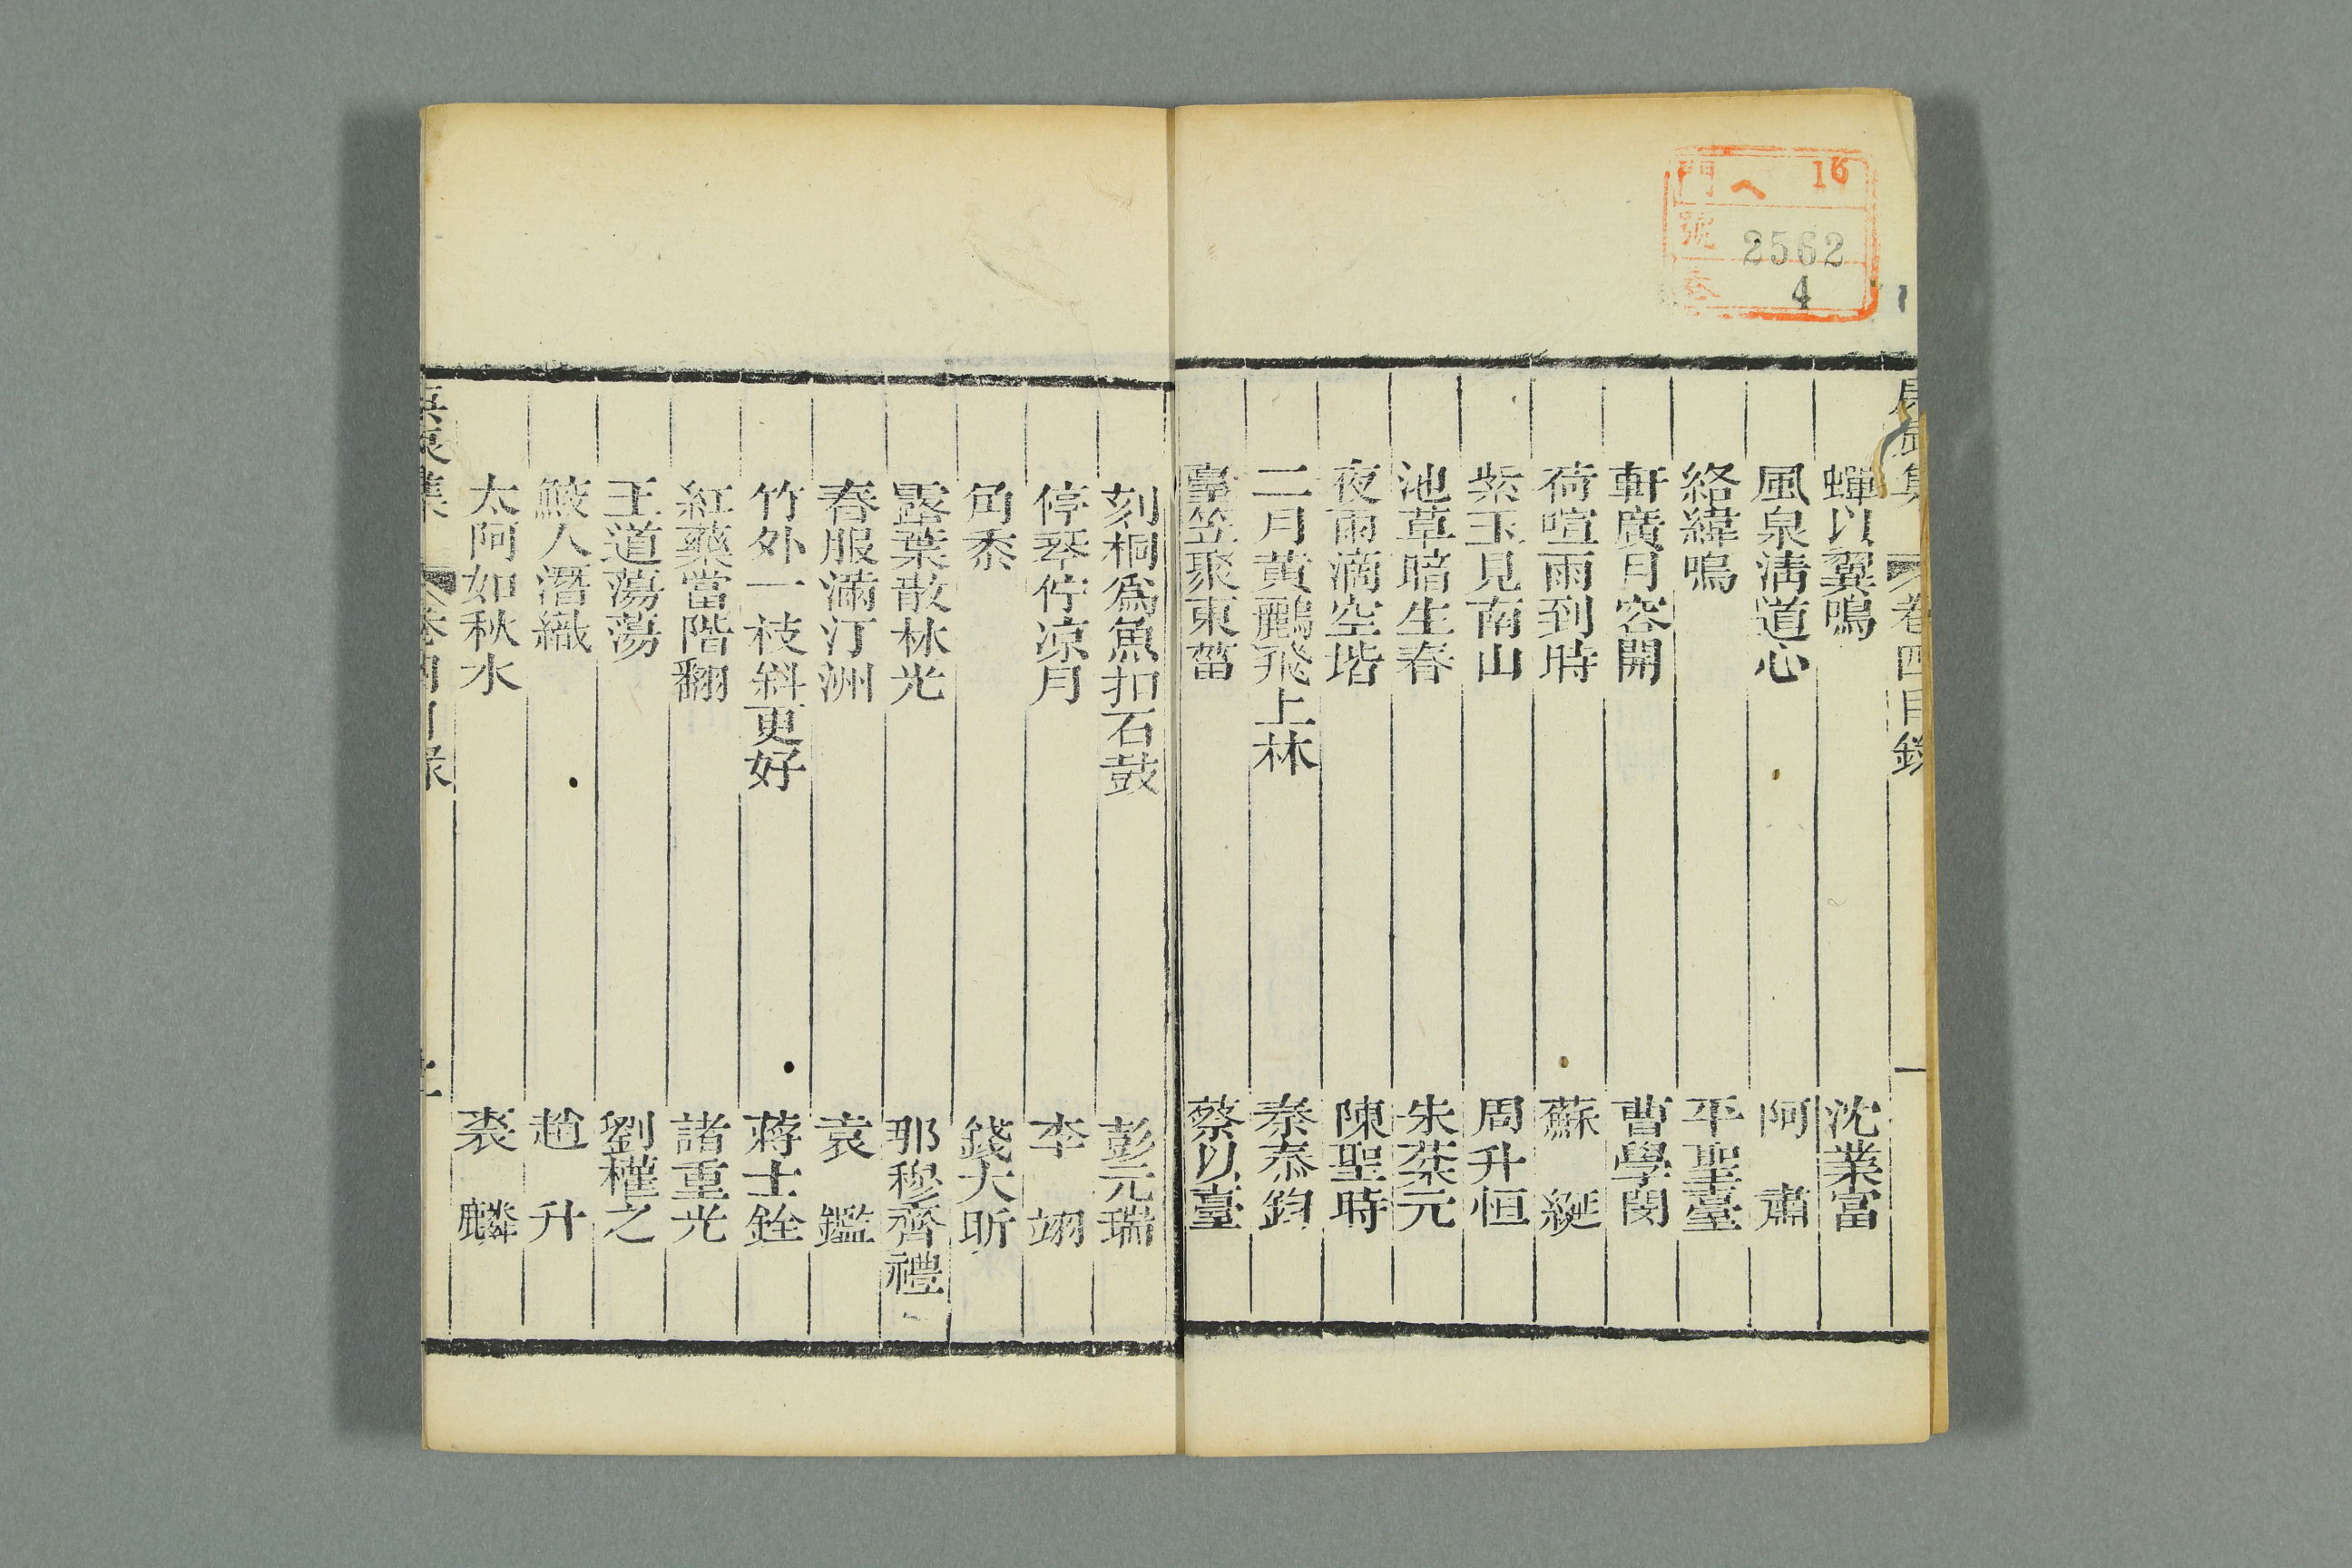 門 ヘ 16
號 2562
卷 4
集 卷四目錄 一
蟬以翼鳴 沈業富
風泉淸道心 阿肅
絡緯鳴 平聖臺
軒廣月容開 曹學閔
荷喧雨到時 蘇綎
紫玉見南山 周升恒
池草暗生春 朱棻元
夜雨滴空堦 陳聖時
二月黃鸝飛上林 秦泰鈞
臺笠聚東菑 蔡以臺
刻桐爲魚扣石鼓 彭元瑞
停琴佇凉月 李翊
角黍 錢大昕
露葉散林光 那穆齊禮
春服滿汀洲 袁鑑
竹外一枝斜更好 蔣士銓
紅藥當階翻 諸重光
王道蕩蕩 劉權之
鮫人潛織 趙升
太阿如秋水 裘麟
集 卷四目錄